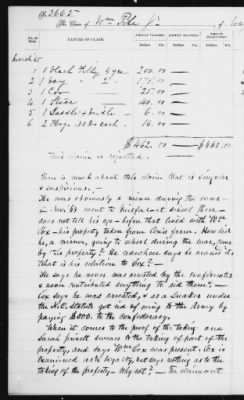 The Claim of Wm Pike Jr of
NATURE OF CLAIM. AMOUNT CLAIMED. AMOUNT ALLOWED. AMOUNT DISALLOWED.
Dolls. Cts. Dolls. Cts. Dolls. Cts.
1 1 Black Filly 4 yrs 200.00
2 1 Bay 175.00
3 1 Cow 25.00
4 1 Steer 40.00
5 1 Saddle & bridle 6.00
6 2 Hogs 16.00
$462.00 $462.00
This claim is rejected.
There is much about this claim that is singular
& suspicious.
He was obviously a minor during the war
went to school there
does not tell his age – before that lived with Wm
Cox – his property taken from Cox's farm. How did
he, a minor, going to school during the war, come
by this property? He nowhere says he owned it
What is his relation to Cox?
He says he never was arrested by the confederates
& never contributed anything to aid them:
Cox says he was arrested, & as a Quaker under
the N.C. Statute got rid of going to the Army by
paying $500. to the confederacy.
When it comes to the proof of the taking
Sarah swears to the taking of part of the
property, and says Wm Cox was present. Cox is
examined as to loyalty, but says nothing as to the
taking of the property. Why not? – the claimant